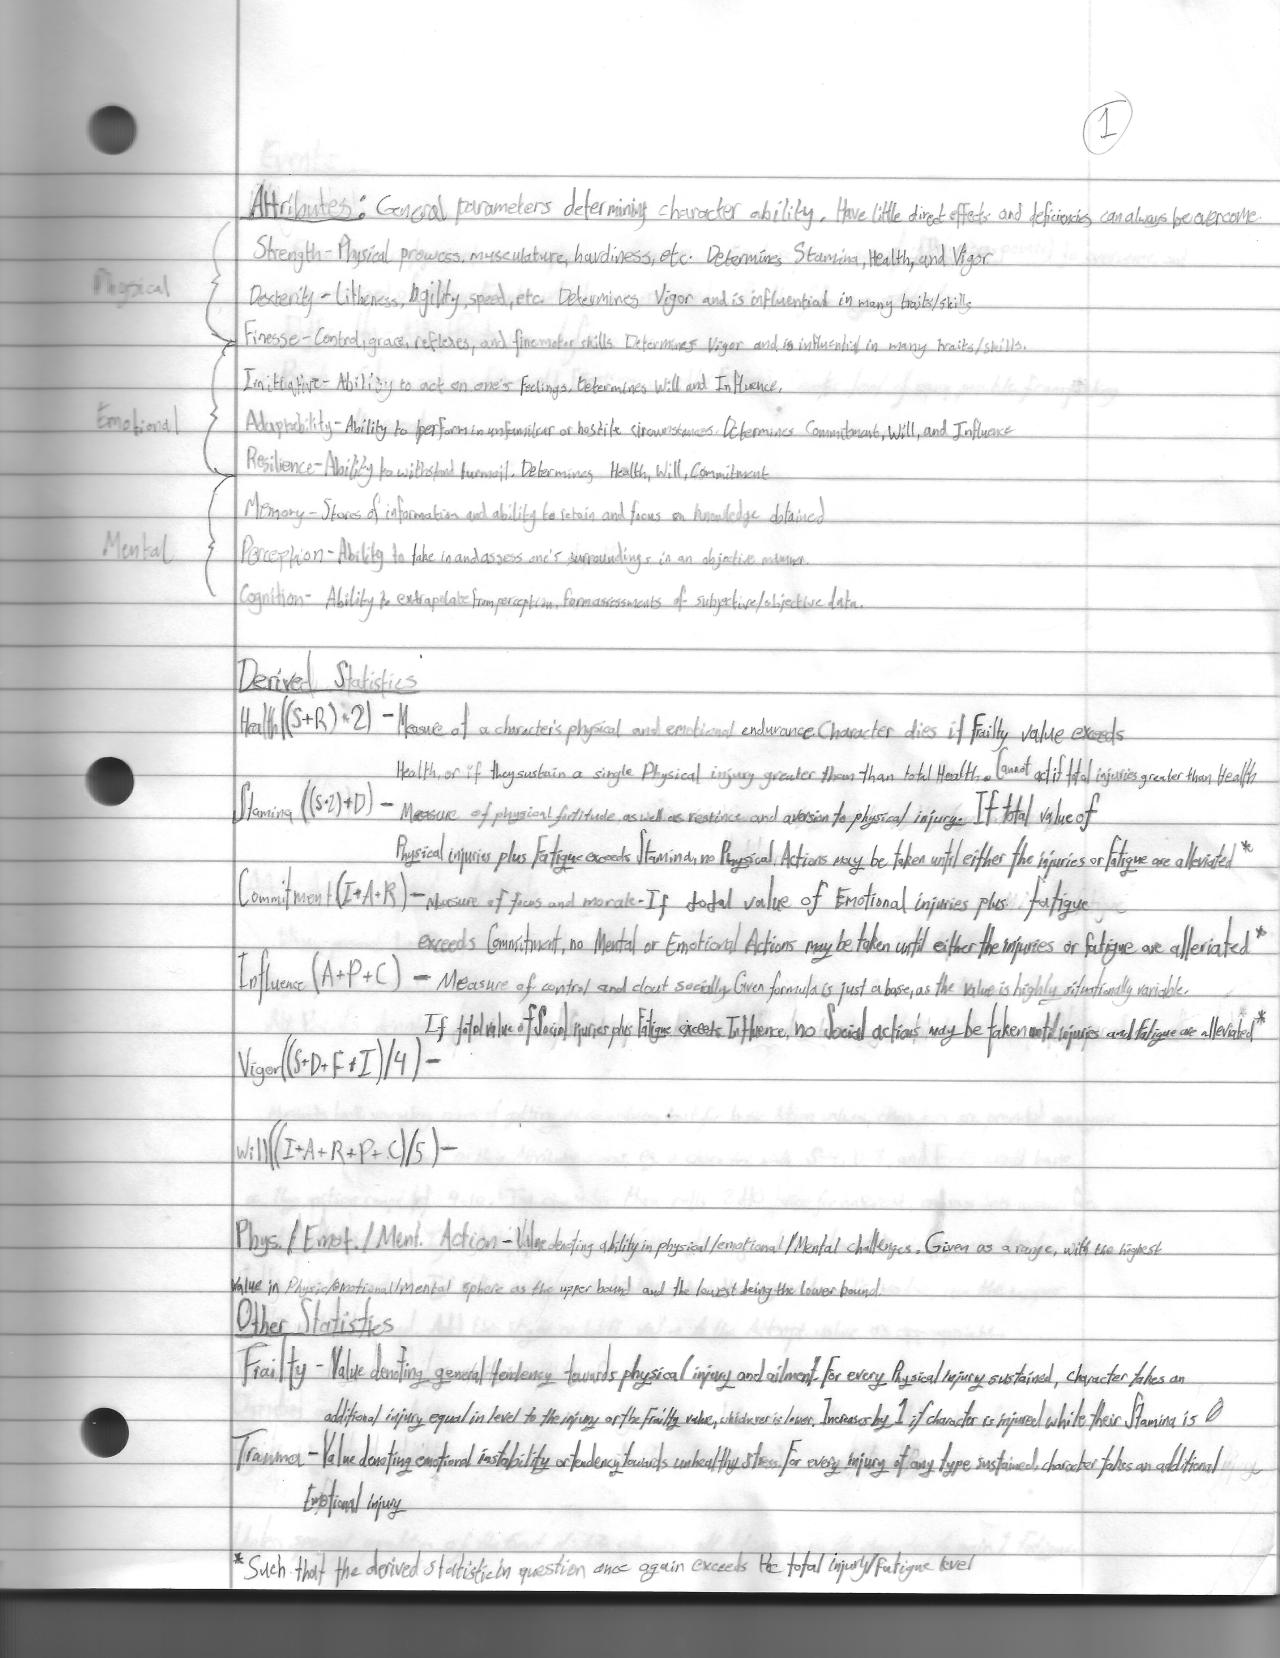 1
Attributes: General parameters determining character ability. Have little direct effects and deficiencies can always be overcome.
Physical
Strength - Physical prowess, musculature, hardiness, etc. Determines Stamina, Health, and Vigor
Dexterity - Litheness, Agility, speed, etc. Determines Vigor and is influential in many traits/skills
Finesse - Control, grace, reflexes, and fine motor skills Determines Vigor and is influential in many traits/skills.
Emotional
Initiative - Ability to act on one's feelings. Determines Will and Influence.
Adaptability - Ability to perform in unfamiliar or hostile circumstances. Determines Commitment, Will, and Influence
Resilience - Ability to withstand turmoil. Determines Health, Will, Commitment
Mental
Memory - Stores of information and ability to retain and focus on knowledge obtained
Perception - Ability to take in and assess one's surroundings in an objective manner.
Cognition - Ability to extrapolate from perception, form assessments of subjective/objective data.
Derived Statistics
Health((S+R)*2) - Measure of a character's physical and emotional endurance. Character dies if Frailty value exceeds
Health, or if they sustain a single Physical injury greater than than total Health. Cannot act if total injuries greater than Health
Stamina ((S*2)+D) - Measure of physical fortitude, as well as and aversion to physical injury. If total value of
Physical injuries plus Fatigue exceeds Stamina, no Physical Actions may be taken until either the injuries or fatigue are alleviated *
Commitment (I+A+R) - Measure of focus and morale - If total value of Emotional injuries plus fatigue
exceeds Commitment, no Mental or Emotional Actions may be taken until either the injuries or fatigue are alleviated*
Influence (A+P+C) - Measure of control and clout socially. Given formula is just a base, as the value is highly situationally variable.
If total value of Social injuries plus Fatigue exceeds Influence, no Social actions may be taken until injuries and fatigue are alleviated*
Vigor((S+D+F+I)/4) -
Will((I+A+R+P+C)/5) -
Phys./Emot./Ment. Action - Value denoting ability in physical/emotional/Mental challenges. Given as a range, with the highest
value in Physical/emotional/mental sphere as the upper bound and the lowest being the lower bound.
Other Statistics
Frailty - Value denoting general tendency towards physical injury and ailment. For every Physical injury sustained, character takes an
additional injury equal in level to the injury or the Frailty value, whichever is lower. Increases by 1 if character is injured while their Stamina is 0
Trauma - Value denoting emotional instability or tendency towards unhealthy stress. For every injury of any type sustained, character takes an additional
Emotional injury
*Such that the derived statistic in question once again exceeds the total injury/fatigue level